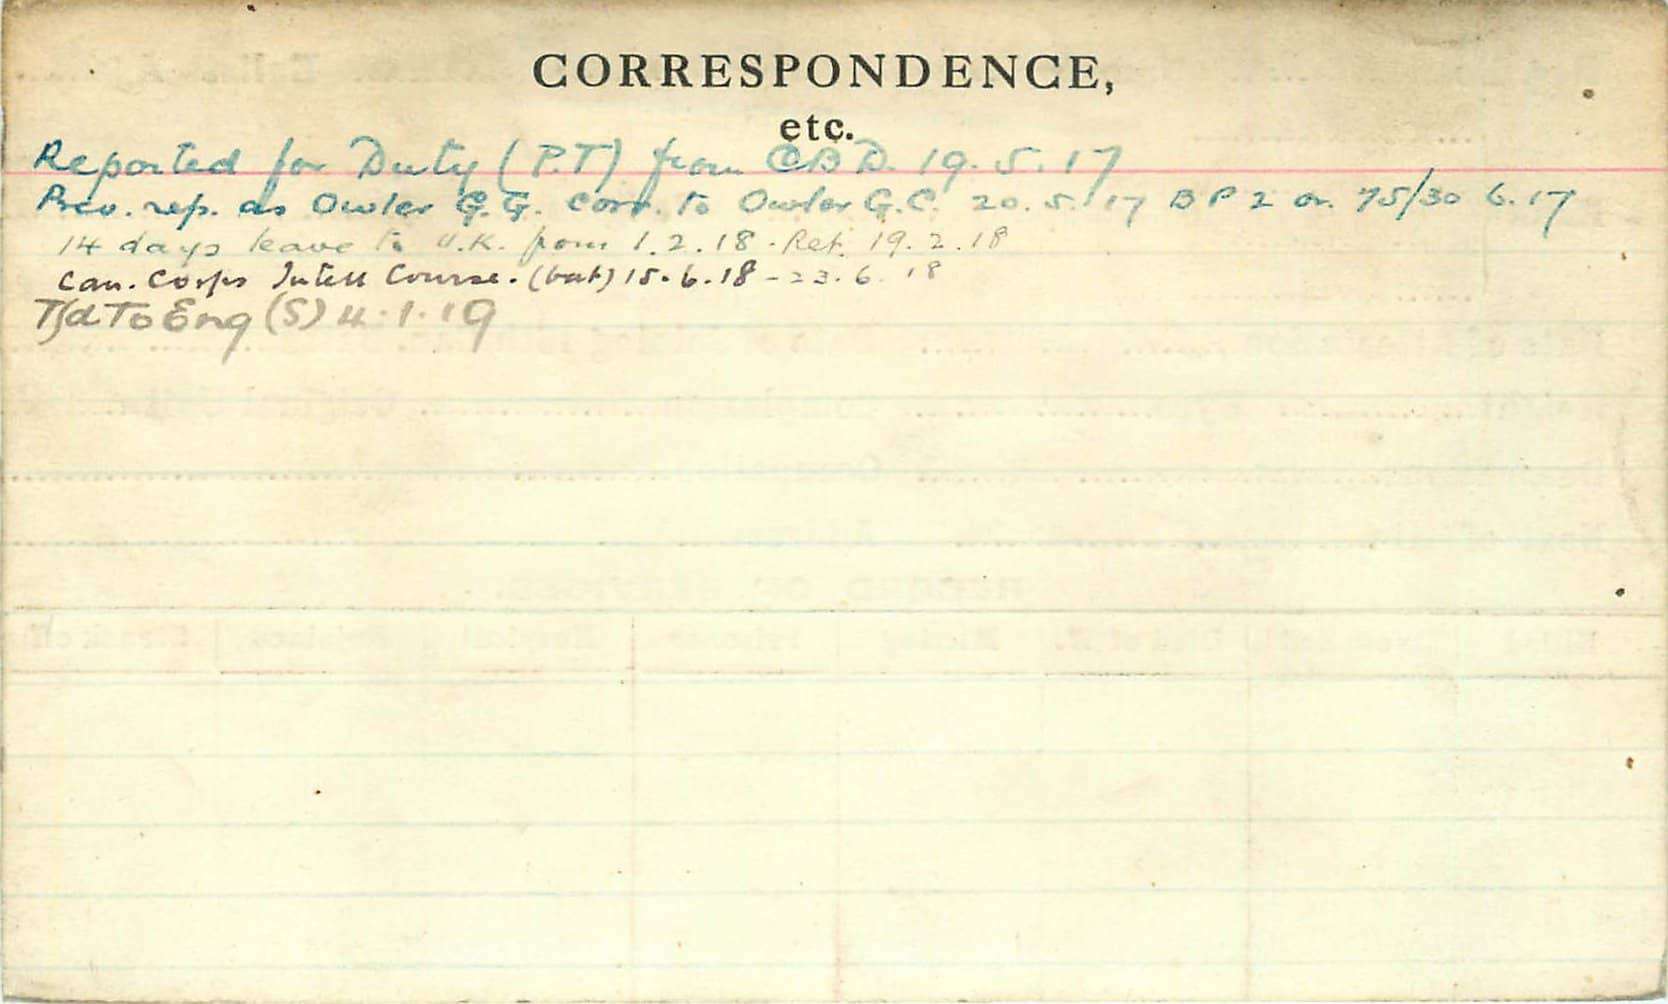 CORRESPONDENCE,
etc.
Reported for Duty (P.T) from CBD. 19.5.17
Prev. rep. as Owler G.G. corr. to Owler G.C. 20.5.17 BP2 or. 75/30 6.17
14 days leave to U.K. from 1.2.18. Ret. 19.2.18
Can. Corps Intell Course. 15.6.18 - 23.6.18
Tfd To Eng (S) 4.1.19
RECORD OF SERVICES.